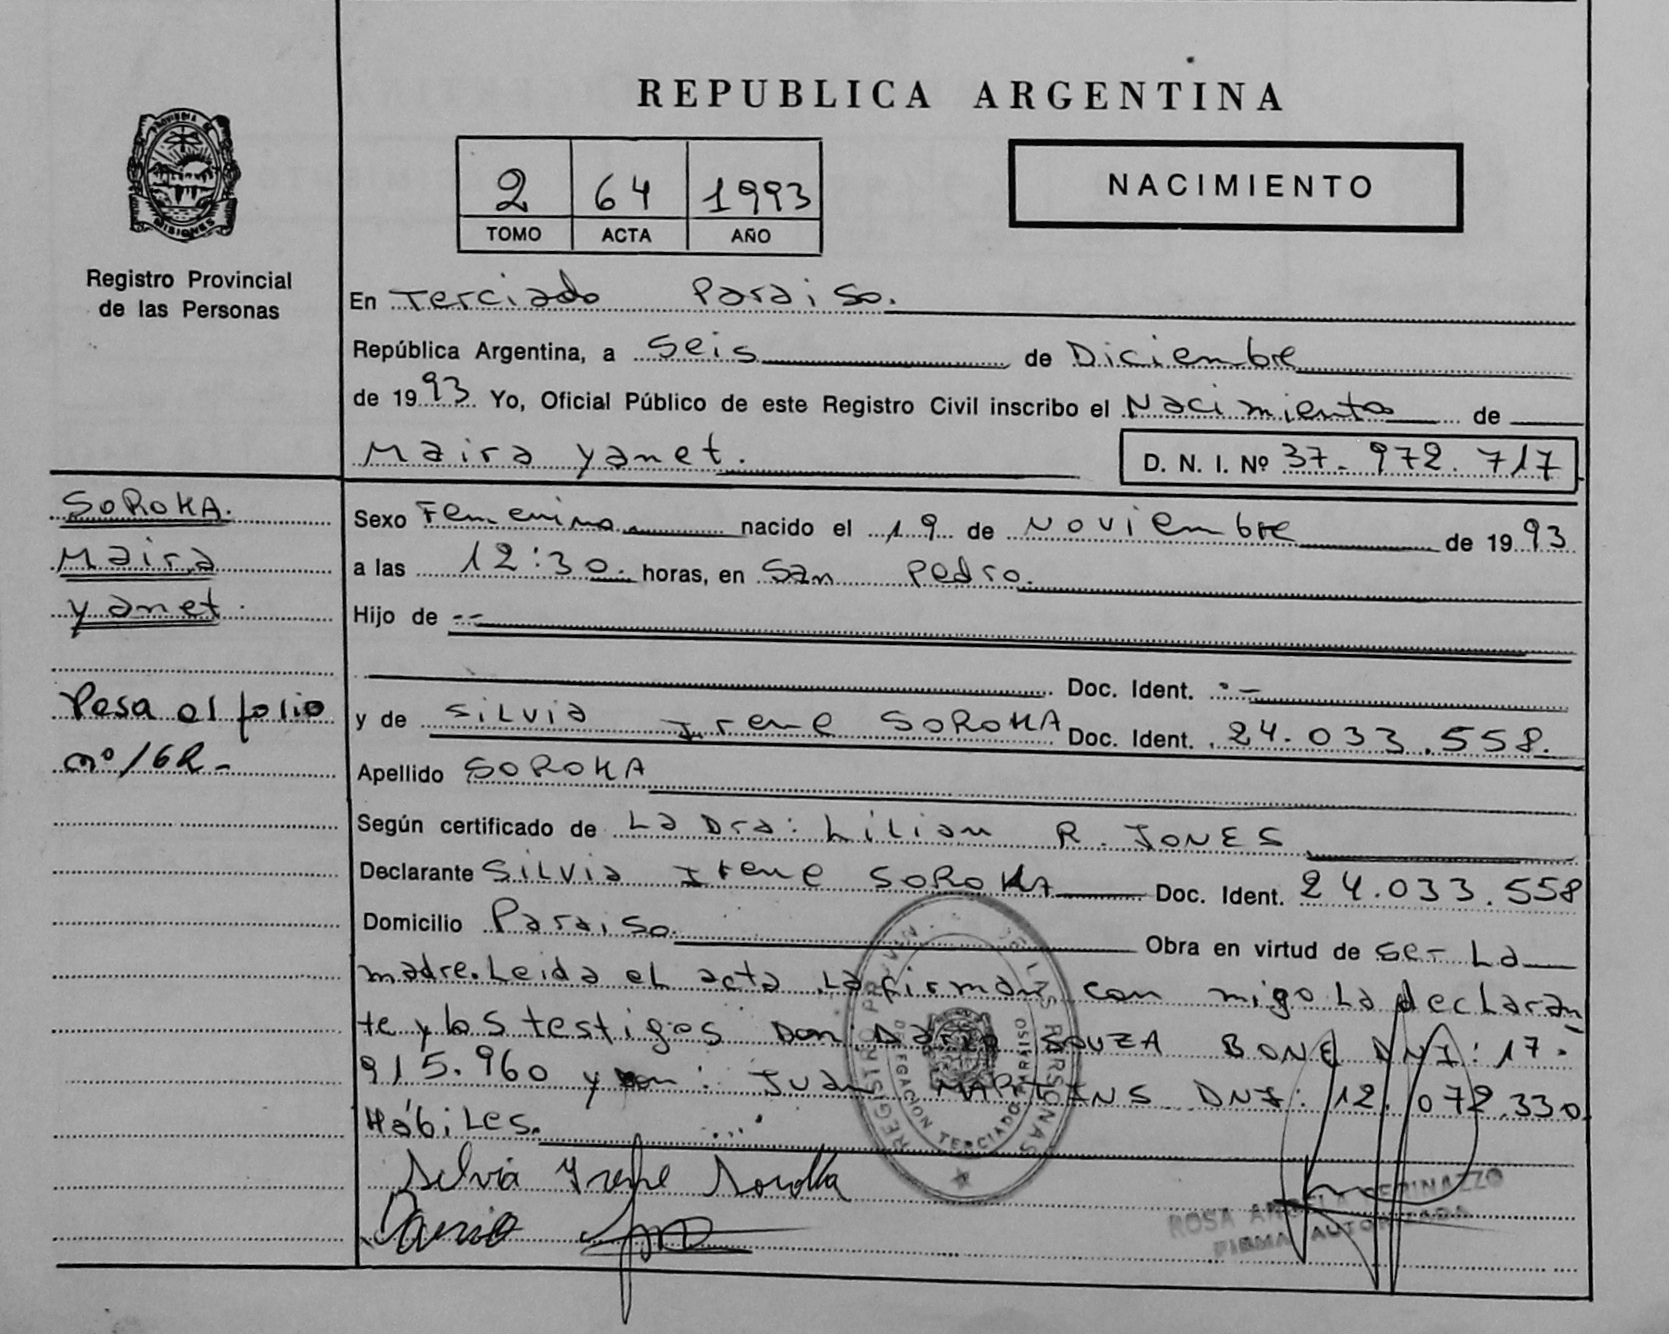 REPUBLICA ARGENTINA
PROVINCIA DE MISIONES
2 64 1993
TOMO ACTA AÑO
NACIMIENTO
Registro Provincial
de las Personas
En Terciado Paraiso.
República Argentina, a Seis de Diciembre
de 1993 Yo, Oficial Público de este Registro Civil inscribo el Nacimiento de
Maira Yanet.
D. N. I. Nº 37.972.717
SOROKA.
Maira
Yanet.
Pasa al folio
nº 16R-
Sexo Femenino nacido el 19 de Noviembre de 1993
a las 12:30. horas, en San Pedro.
Hijo de --
Doc. Ident. --
y de Silvia Irene SOROKA Doc. Ident. 24.033.558.
Apellido SOROKA
Según certificado de La Dra: Lilian R. JONES
Declarante Silvia Irene SOROKA Doc. Ident. 24.033.558
Domicilio Paraiso. Obra en virtud de ser La
madre. Leida el acta La firman con migo La declaran
te y los testigos Don: Dario SOUZA BONE DNI: 17.
915.960 y : Juan MARTINS DNI: 12.072.330
Hábiles.
REGISTRO DE LAS PERSONAS
DELEGACION TERCIADO PARAISO
Silvia Irene Soroka
Dario
ROSA
FIRMA AUTORIZADA